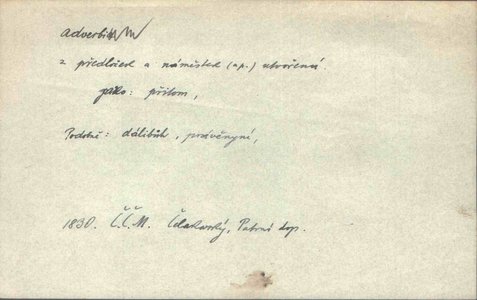 Adverbia
z předložek a náměstek (ap.) utvořená.
jako: přitom,
Podobně: dálibůh, právěnyní,
1830. Č.Č.M. Čelakovský, Patrné dop.